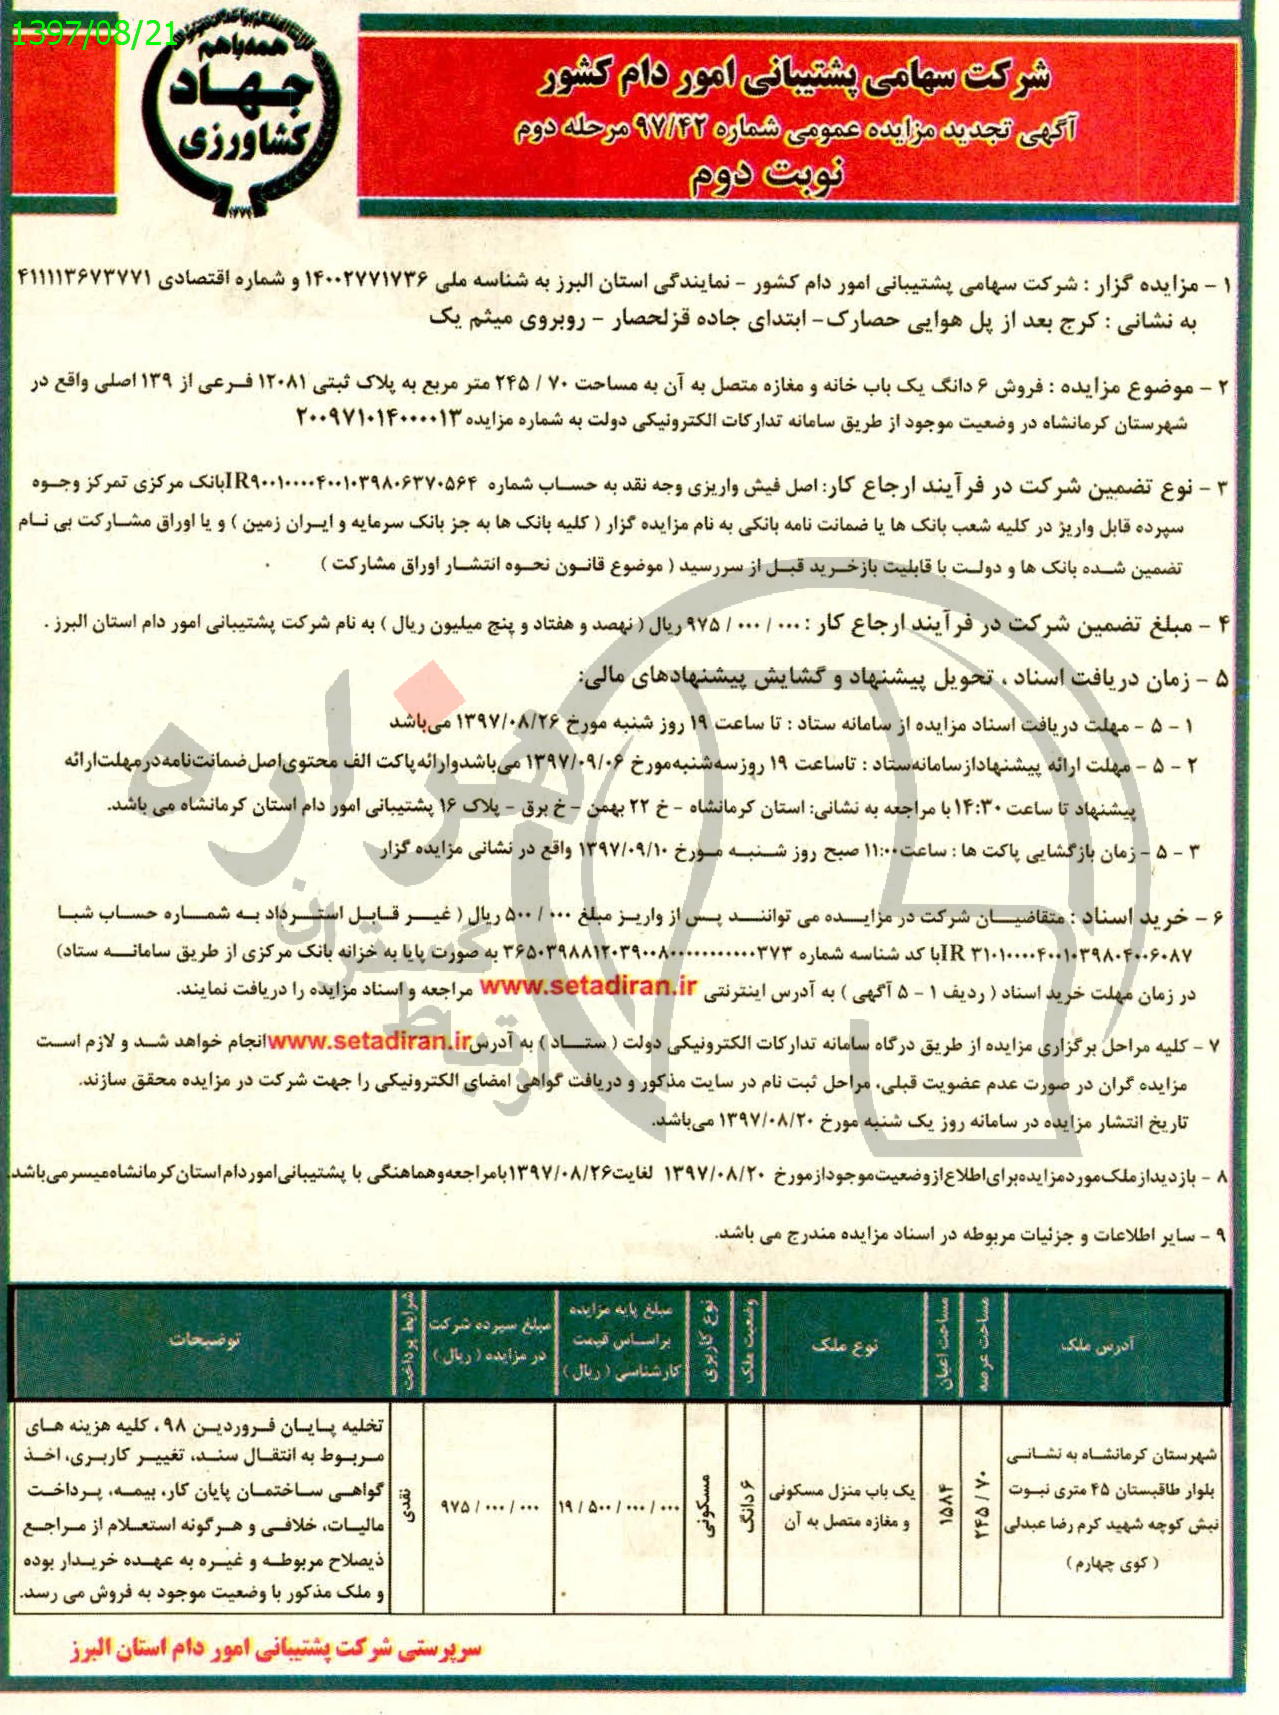 1397/08/21
همه با هم
جهاد
کشاورزی
شرکت سهامی پشتیبانی امور دام کشور
آگهی تجدید مزایده عمومی شماره ۹۷/۴۲ مرحله دوم
نوبت دوم
۱ - مزایده گزار : شرکت سهامی پشتیبانی امور دام کشور - نمایندگی استان البرز به شناسه ملی ۱۴۰۰۲۷۷۱۷۳۶ و شماره اقتصادی ۴۱۱۱۱۳۶۷۳۷۷۱
به نشانی : کرج بعد از پل هوایی حصارک- ابتدای جاده قزلحصار - روبروی میثم یک
۲ - موضوع مزایده : فروش ۶ دانگ یک باب خانه و مغازه متصل به آن به مساحت ۷۰ / ۲۴۵ متر مربع به پلاک ثبتی ۱۲۰۸۱ فرعی از ۱۳۹ اصلی واقع در
شهرستان کرمانشاه در وضعیت موجود از طریق سامانه تدارکات الکترونیکی دولت به شماره مزایده ۲۰۰۹۷۱۰۱۴۰۰۰۰۱۳
۳ - نوع تضمین شرکت در فرآیند ارجاع کار: اصل فیش واریزی وجه نقد به حساب شماره IR۹۰۰۱۰۰۰۰۴۰۰۱۰۳۹۸۰۶۳۷۰۵۶۴بانک مرکزی تمرکز وجوه
سپرده قابل واریز در کلیه شعب بانک ها یا ضمانت نامه بانکی به نام مزایده گزار ( کلیه بانک ها به جز بانک سرمایه و ایران زمین ) و یا اوراق مشارکت بی نام
تضمین شده بانک ها و دولت با قابلیت بازخرید قبل از سررسید ( موضوع قانون نحوه انتشار اوراق مشارکت )
۴ - مبلغ تضمین شرکت در فرآیند ارجاع کار : ۰۰۰ / ۰۰۰ / ۹۷۵ ریال ( نهصد و هفتاد و پنج میلیون ریال ) به نام شرکت پشتیبانی امور دام استان البرز .
۵ - زمان دریافت اسناد ، تحویل پیشنهاد و گشایش پیشنهادهای مالی:
۱ - ۵ - مهلت دریافت اسناد مزایده از سامانه ستاد : تا ساعت ۱۹ روز شنبه مورخ ۱۳۹۷/۰۸/۲۶ می‌باشد
۲ - ۵ - مهلت ارائه پیشنهاد از سامانه ستاد : تا ساعت ۱۹ روز سه شنبه مورخ ۱۳۹۷/۰۹/۰۶ می‌باشد و ارائه پاکت الف محتوی اصل ضمانت نامه در مهلت ارائه
پیشنهاد تا ساعت ۱۴:۳۰ با مراجعه به نشانی: استان کرمانشاه - خ ۲۲ بهمن - خ برق - پلاک ۱۶ پشتیبانی امور دام استان کرمانشاه می باشد.
۳ - ۵ - زمان بازگشایی پاکت ها : ساعت ۱۱:۰۰ صبح روز شنبه مورخ ۱۳۹۷/۰۹/۱۰ واقع در نشانی مزایده گزار
۶ - خرید اسناد : متقاضیان شرکت در مزایده می توانند پس از واریز مبلغ ۰۰۰ / ۵۰۰ ریال ( غیر قابل استرداد به شماره حساب شبا
IR ۳۱۰۱۰۰۰۰۴۰۰۱۰۳۹۸۰۴۰۰۶۰۸۷با کد شناسه شماره ۳۶۵۰۳۹۸۸۱۲۰۳۹۰۰۸۰۰۰۰۰۰۰۰۰۰۰۳۷۳ به صورت پایا به خزانه بانک مرکزی از طریق سامانه ستاد)
در زمان مهلت خرید اسناد ( ردیف ۱ - ۵ آگهی ) به آدرس اینترنتی www.setadiran.ir مراجعه و اسناد مزایده را دریافت نمایند.
۷ - کلیه مراحل برگزاری مزایده از طریق درگاه سامانه تدارکات الکترونیکی دولت ( ستاد ) به آدرس www.setadiran.ir انجام خواهد شد و لازم است
مزایده گران در صورت عدم عضویت قبلی، مراحل ثبت نام در سایت مذکور و دریافت گواهی امضای الکترونیکی را جهت شرکت در مزایده محقق سازند.
تاریخ انتشار مزایده در سامانه روز یک شنبه مورخ ۱۳۹۷/۰۸/۲۰ می‌باشد.
۸ - بازدید از ملک مورد مزایده برای اطلاع از وضعیت موجود از مورخ ۱۳۹۷/۰۸/۲۰ لغایت ۱۳۹۷/۰۸/۲۶ با مراجعه و هماهنگی با پشتیبانی امور دام استان کرمانشاه میسر می باشد.
۹ - سایر اطلاعات و جزئیات مربوطه در اسناد مزایده مندرج می باشد.
آدرس ملک
مساحت عرصه
مساحت اعیان
نوع ملک
وضعیت ملک
نوع کاربری
مبلغ پایه مزایده
براساس قیمت
کارشناسی ( ریال )
مبلغ سپرده شرکت
در مزایده ( ریال )
شرایط پرداخت
توضیحات
شهرستان کرمانشاه به نشانی
بلوار طاقبستان ۴۵ متری نبوت
نبش کوچه شهید کرم رضا عبدلی
( کوی چهارم )
۲۴۵ / ۷۰
۱۵۸۴
یک باب منزل مسکونی
و مغازه متصل به آن
۶ دانگ
مسکونی
۱۹ / ۵۰۰ / ۰۰۰ / ۰۰۰
۹۷۵ / ۰۰۰ / ۰۰۰
نقدی
تخلیه پایان فروردین ۹۸ ، کلیه هزینه های
مربوط به انتقال سند، تغییر کاربری، اخذ
گواهی ساختمان پایان کار، بیمه، پرداخت
مالیات، خلافی و هرگونه استعلام از مراجع
ذیصلاح مربوطه و غیره به عهده خریدار بوده
و ملک مذکور با وضعیت موجود به فروش می رسد.
سرپرستی شرکت پشتیبانی امور دام استان البرز
هزاره
ارتباط